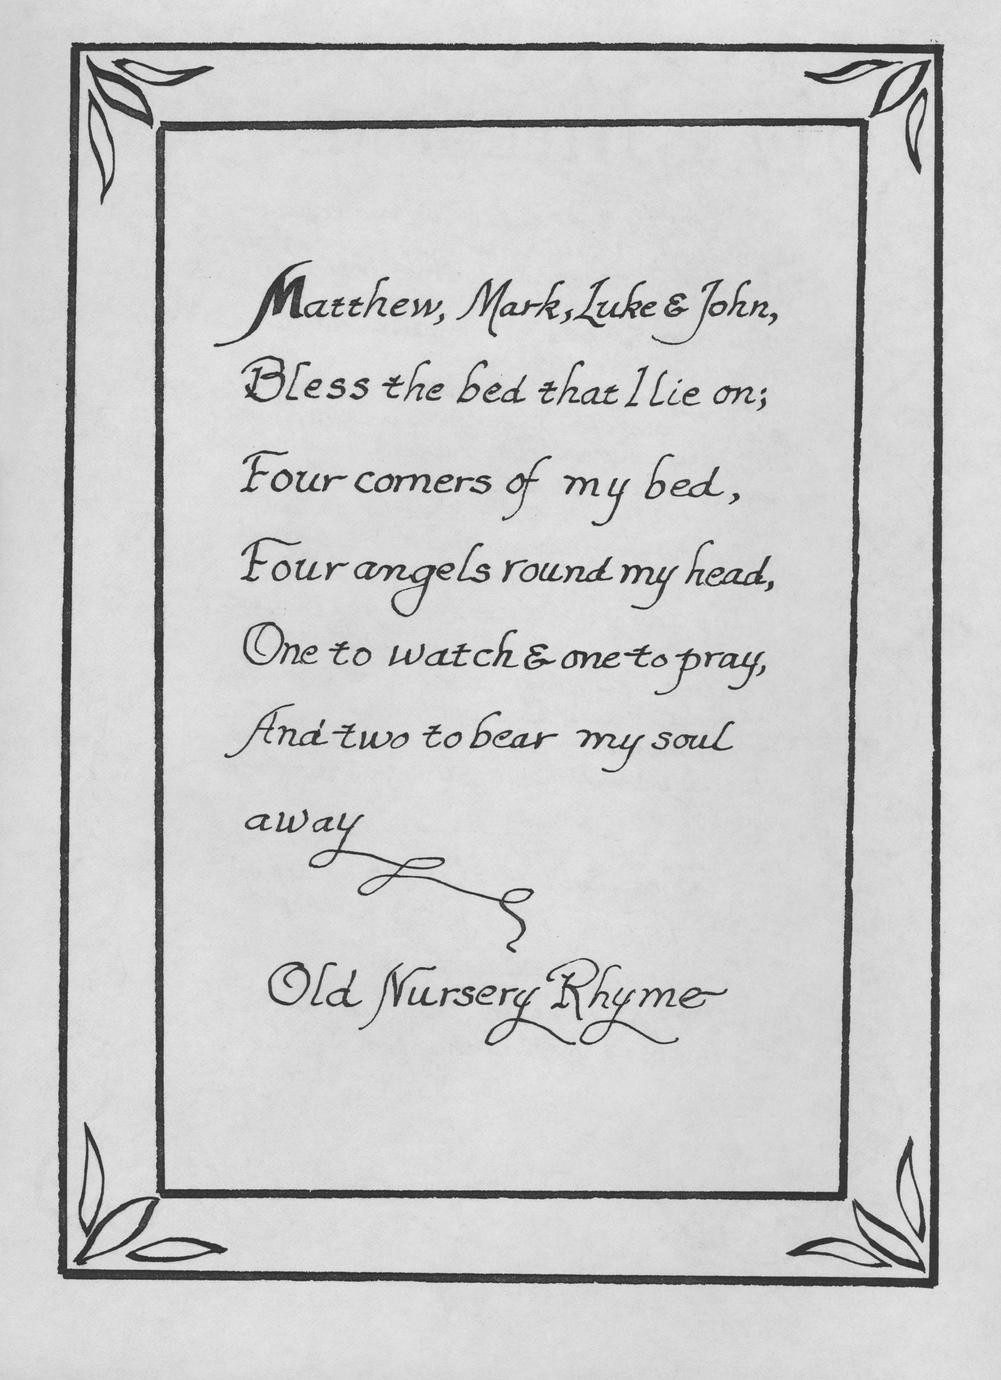 Matthew, Mark, Luke & John,
Bless the bed that I lie on;
Four corners of my bed,
Four angels round my head,
One to watch & one to pray,
And two to bear my soul
away
Old Nursery Rhyme